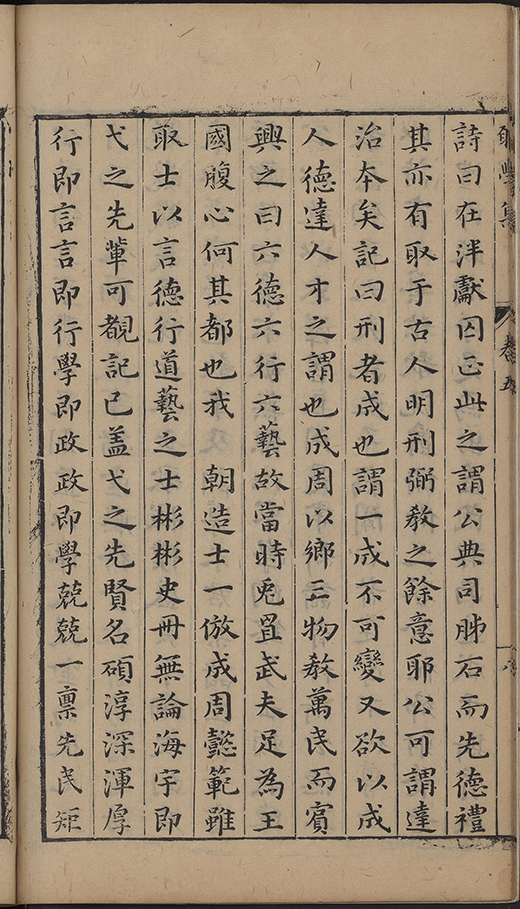 詩曰在泮獻囚正此之謂公典司肺石而先德禮
其亦有取于古人明刑弼敎之餘意耶公可謂達
治本矣記曰刑者成也謂一成不可變又欲以成
人德達人才之謂也成周以鄉三物敎萬民而賓
興之曰六德六行六藝故當時兎罝武夫足為王
國腹心何其都也我 朝造士一倣成周懿範雖
取士以言德行道藝之士彬彬史冊無論海宇即
弋之先輩可覩記已盖弋之先賢名碩淳深渾厚
行即言言即行學即政政即學兢兢一禀先民矩